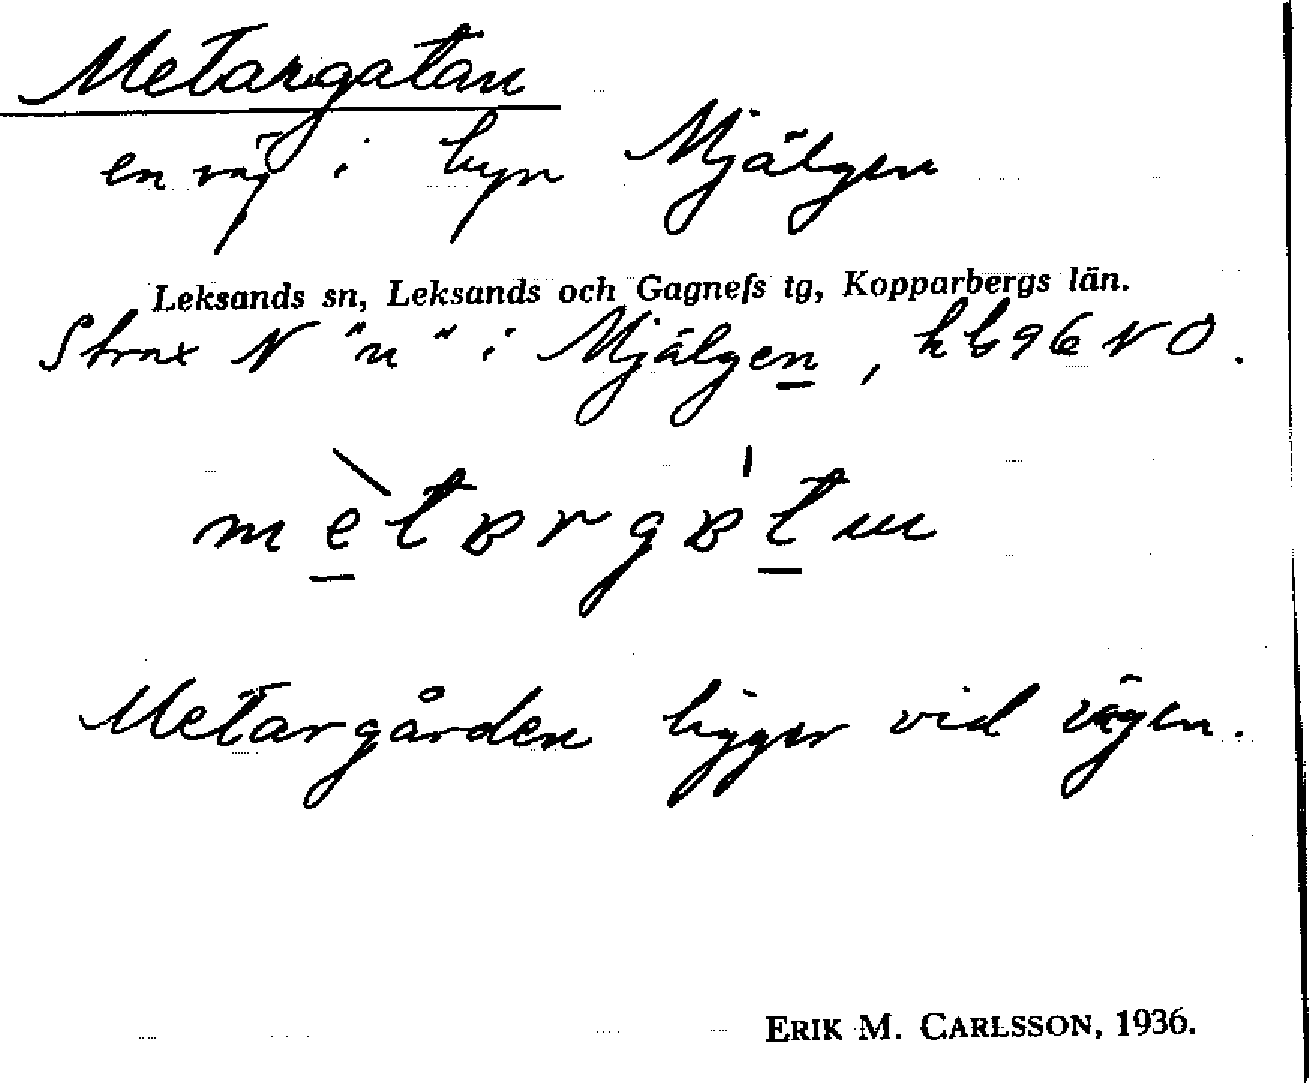 Metargatan
en väg i byn Mjälgen
Leksands sn, Leksands och Gagnefs tg, Kopparbergs län.
Strax N "n" i Mjälgen, hb 96 NO.
mètɐrgɐ̍tɯ
Metargården ligger vid vägen.
ERIK M. CARLSSON, 1936.